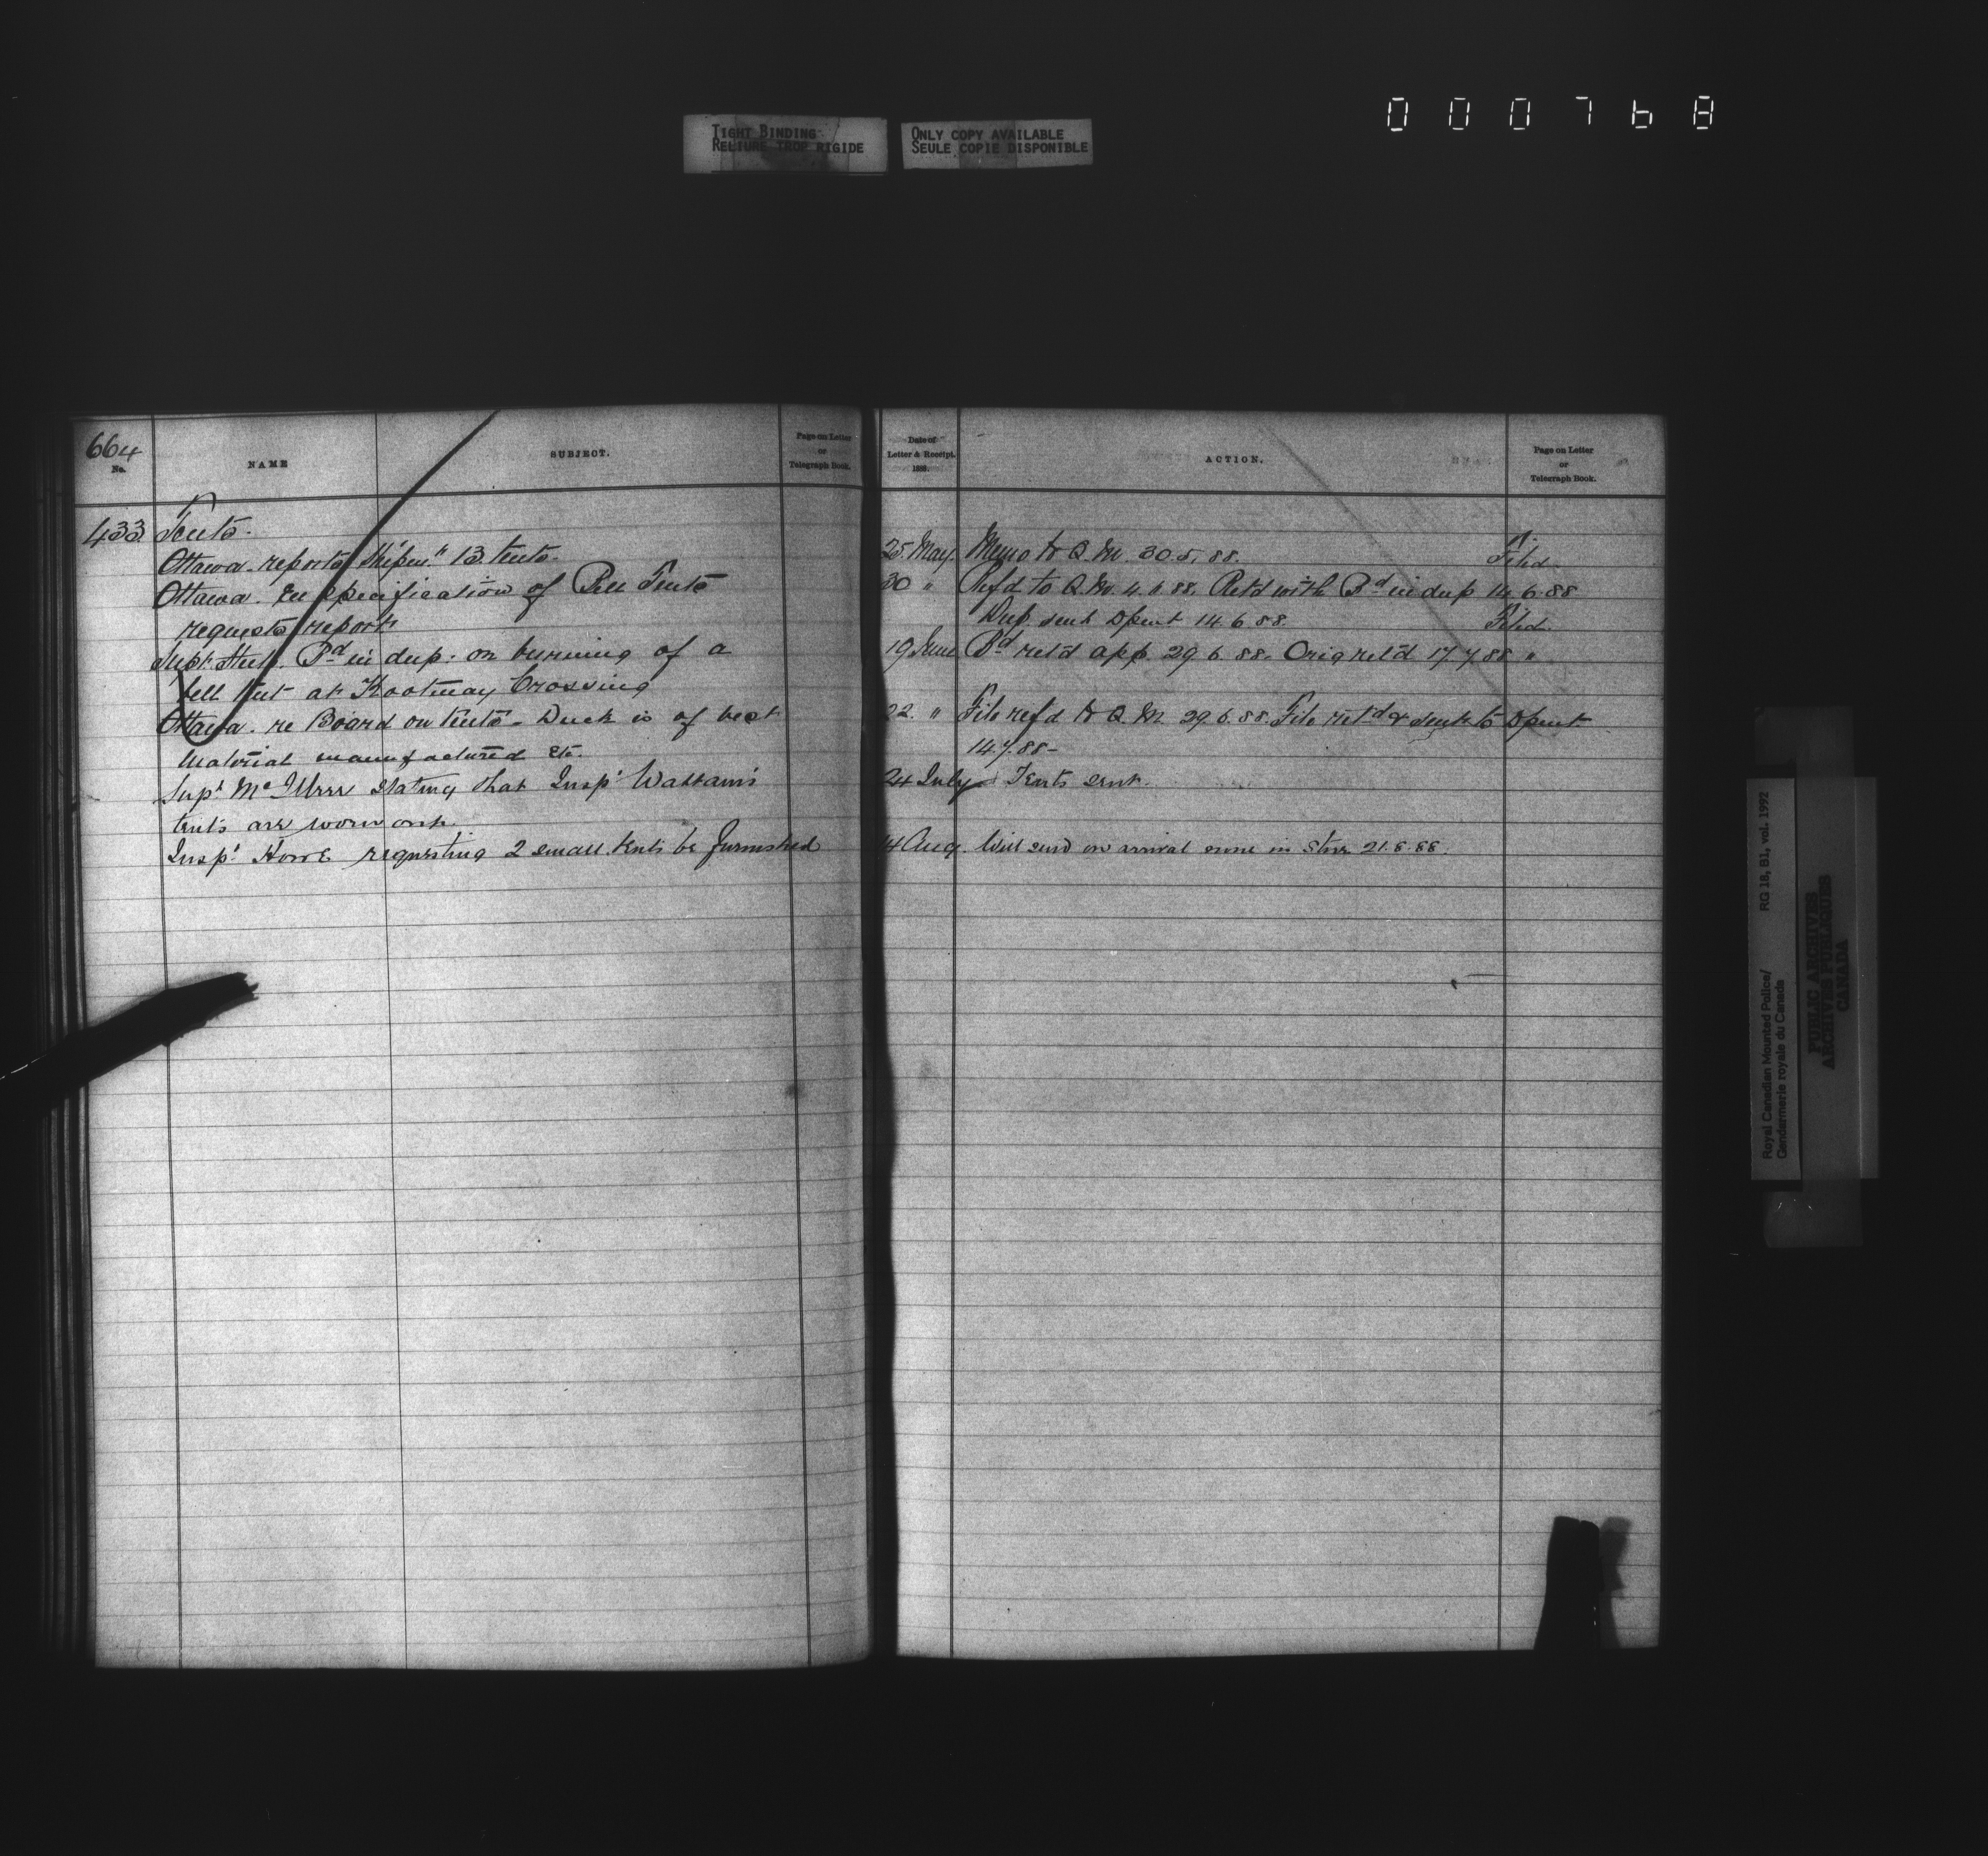 000768
TIGHT BINDING
RELIURE TROP RIGIDE
ONLY COPY AVAILABLE
SEULE COPIE DISPONIBLE
664
No.
NAME
SUBJECT.
Page on Letter
or
Telegraph Book.
433 Tents.
Ottawa. reports Shipm" 13 tents.
Ottawa. Specification of Bell Tents
requests report
Supt Steele. Bd in dup: on burning of a
bell tent at Kootenay Crossing
Ottawa. re Board on tents - Duck is of best
Material manufactured etc.
Supt McIllree stating that Inspr Wattam's
tents are worn out.
Inspr Howe requesting 2 small tents be furnished
Date of
Letter & Receipt.
1888.
ACTION.
Page on Letter
or
Telegraph Book.
25 May. Memo to Q.M. 30.5.88. Filed
30 " Refd to Q.M. 4.6.88. Retd with Bd in dup 14.6.88
Dup. sent Dpent 14.6.88. Filed.
19 June Bd retd app. 29.6.88. Orig retd 17.7.88 "
22. " File refd to Q.M. 29.6.88. File retd & sent to Dpent
14.7.88-
24 July Tents sent.
14 Aug. Will send on arrival none in Store 21.8.88.
Royal Canadian Mounted Police/
Gendarmerie royale du Canada
RG 18, B1, vol. 1992
PUBLIC ARCHIVES
ARCHIVES PUBLIQUES
CANADA